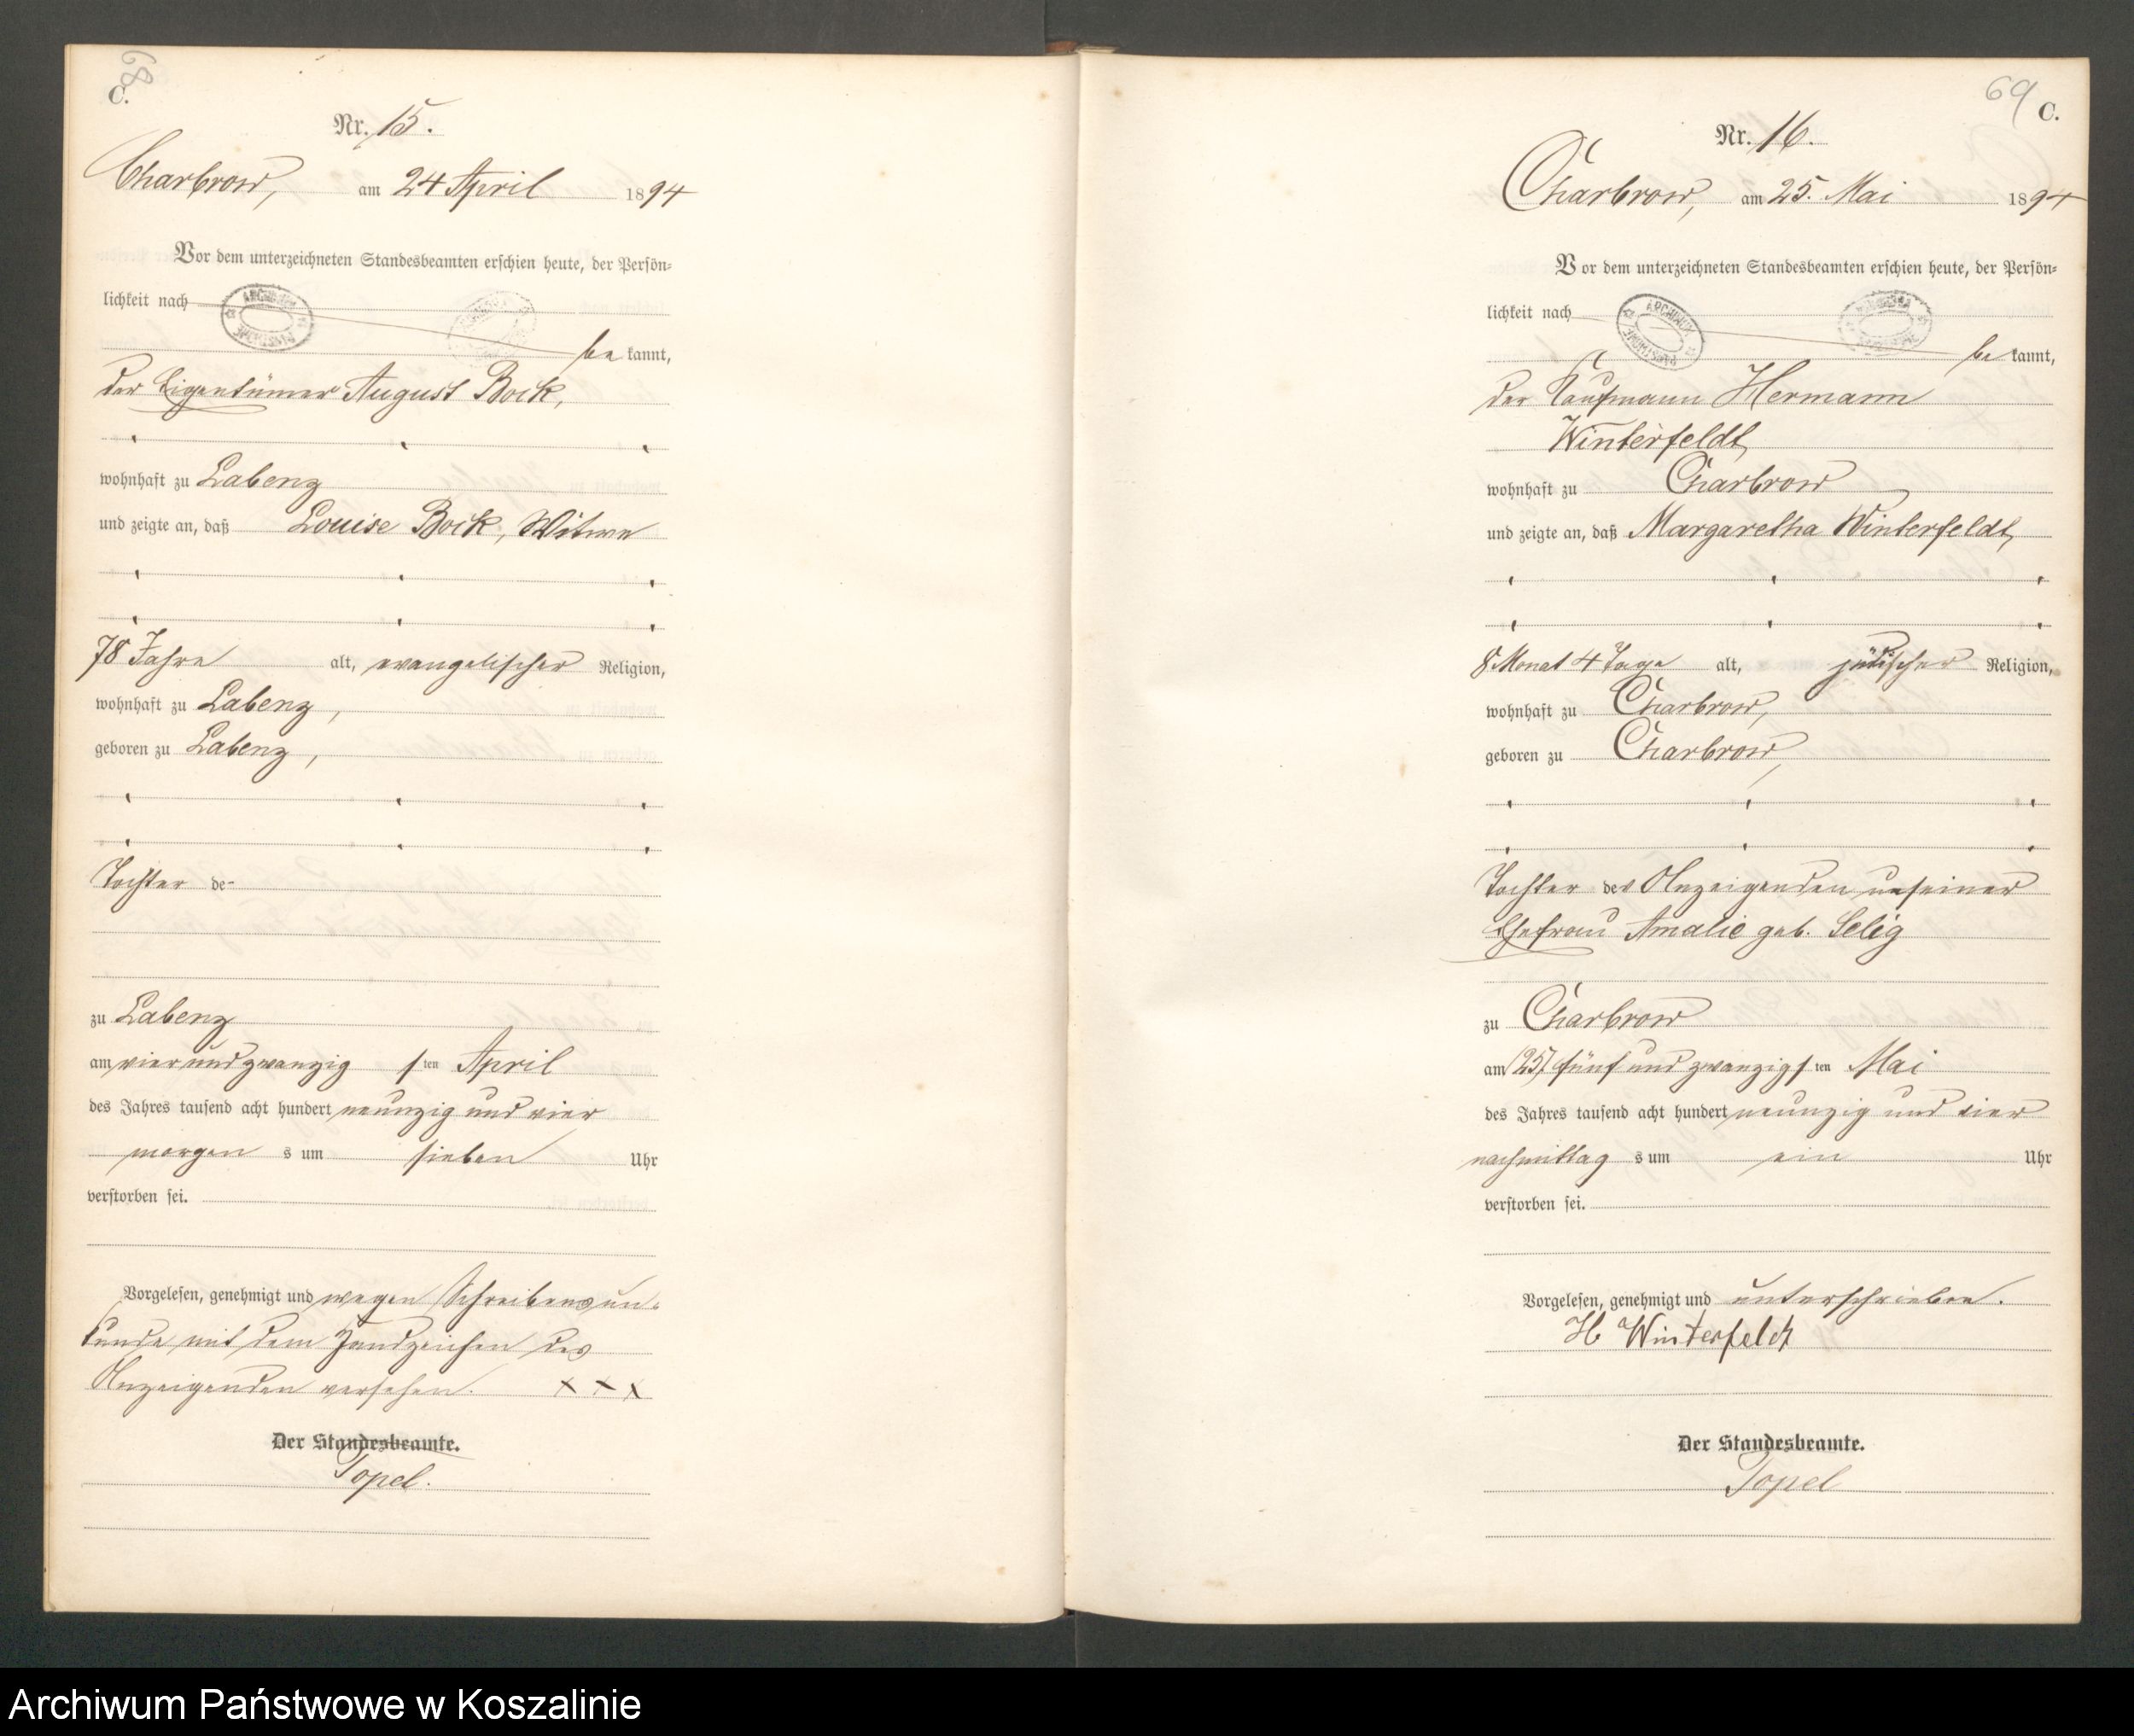 68
C.
Nr. 15.
Charbrow, am 24 April 1894
Vor dem unterzeichneten Standesbeamten erschien heute, der Persön=
lichkeit nach
be kannt,
der Eigentümer August Bock,
wohnhaft zu Labenz
und zeigte an, daß Louise Bock, Witwe
78 Jahre alt, evangelischer Religion,
wohnhaft zu Labenz,
geboren zu Labenz,
Tochter de-
zu Labenz
am vierundzwanzig sten April
des Jahres tausend acht hundert neunzig und vier
morgen s um sieben Uhr
verstorben sei.
Vorgelesen, genehmigt und wegen Schreibensun-
kunde mit dem Handzeichen des
Anzeigenden versehen. X X X
Der Standesbeamte.
Topel.
69
C.
Nr. 16.
Charbrow, am 25. Mai 1894
Vor dem unterzeichneten Standesbeamten erschien heute, der Persön=
lichkeit nach
be kannt,
der Kaufmann Hermann
Winterfeldt
wohnhaft zu Charbrow
und zeigte an, daß Margaretha Winterfeldt,
8 Monat 4 Tage alt, jüdischer Religion,
wohnhaft zu Charbrow,
geboren zu Charbrow,
Tochter des Anzeigenden u seiner
Ehefrau Amalie geb. Selig
zu Charbrow
am (25) fünf und zwanzigsten Mai
des Jahres tausend acht hundert neunzig und vier
nachmittag s um ein Uhr
verstorben sei.
Vorgelesen, genehmigt und unterschrieben.
H Winterfeldt
Der Standesbeamte.
Topel
Archiwum Państwowe w Koszalinie